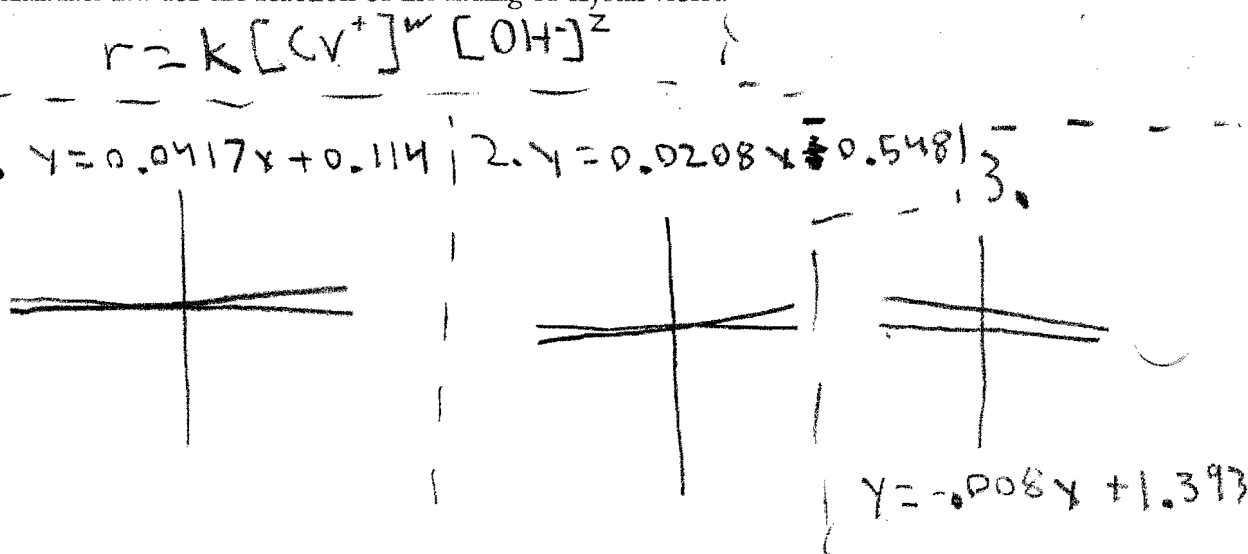 r = k [CV⁺]ʷ [OH⁻]ᶻ
. y = 0.0417x + 0.114
2. y = 0.0208x - 0.5481
3.
y = -.008x + 1.393